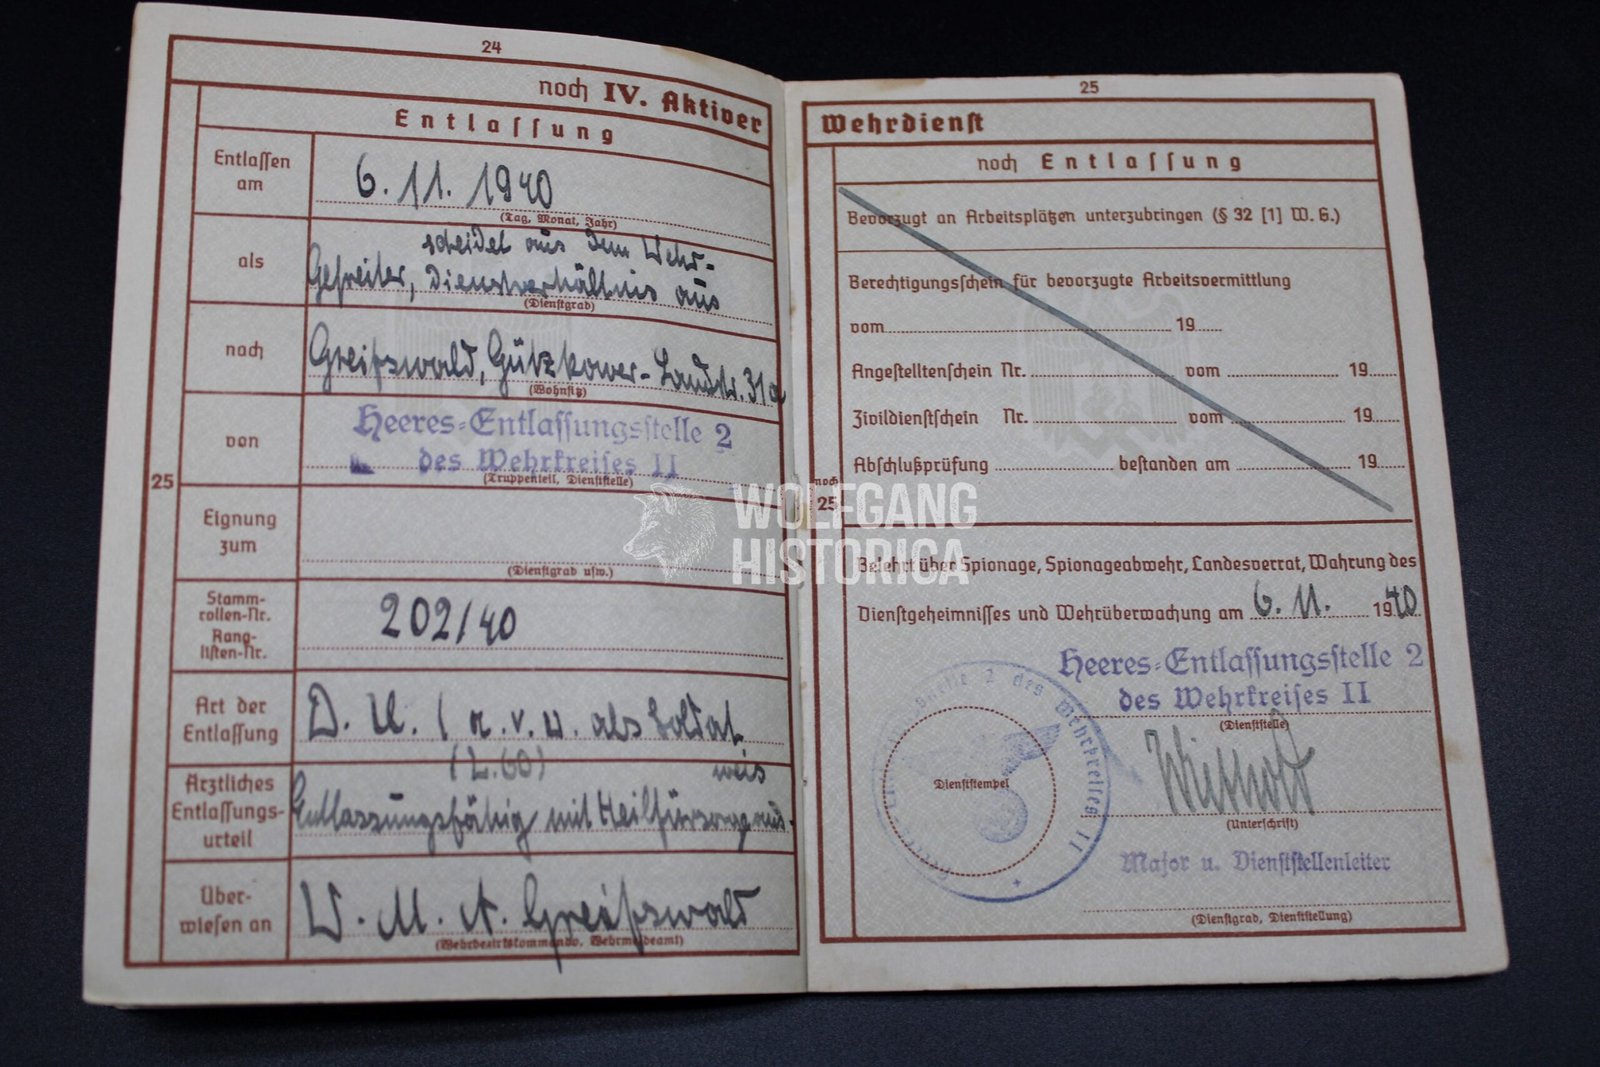 24
noch IV. Aktiver
Entlassung
Entlassen am
6.11.1940
(Tag, Monat, Jahr)
als
scheidet aus dem Wehr-
Gefreiter, Dienstverhältnis aus
(Dienstgrad)
nach
Greifswald, Gützkower-Landstr. 31a
(Wohnsitz)
von
Heeres-Entlassungsstelle 2
des Wehrkreises II
(Truppenteil, Dienststelle)
25
Eignung zum
(Dienstgrad usw.)
Stamm-
rollen-Nr.
Rang-
listen-Nr.
202/40
Art der
Entlassung
D. U. ( a. v. u. als Soldat
Ärztliches
Entlassungs-
urteil
(L. 60)
weis
Entlassungsfähig mit Heilfürsorgeaus-
Über-
wiesen an
W. M. A. Greifswald
(Wehrbezirkskommando, Wehrmeldeamt)
25
Wehrdienst
noch Entlassung
Bevorzugt an Arbeitsplätzen unterzubringen (§ 32 [1] W. G.)
Berechtigungsschein für bevorzugte Arbeitsvermittlung
vom 19
Angestelltenschein Nr. vom 19
Zivildienstschein Nr. vom 19
Abschlußprüfung bestanden am 19
noch
25
Belehrt über Spionage, Spionageabwehr, Landesverrat, Wahrung des
Dienstgeheimnisses und Wehrüberwachung am 6.11. 1940
Heeres-Entlassungsstelle 2
des Wehrkreises II
(Dienststelle)
stelle 2 des Wehrkreises II
Dienststempel
(Unterschrift)
Major u. Dienststellenleiter
(Dienstgrad, Dienststellung)
WOLFGANG
HISTORICA